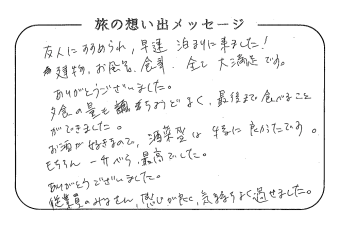 旅の想い出メッセージ
友人にすすめられ、早速 泊まりに来ました!
建物、お風呂、食事、全て 大満足です。
ありがとうございました。
夕食の量もちょうどよく、最後まで食べること
ができました。
お酒が好きなので、酒 は 特に 良かったです。
もちろん 最高でした。
ありがとうございました。
従業員のみなさん、感じが良く、気持ちよく過せました。